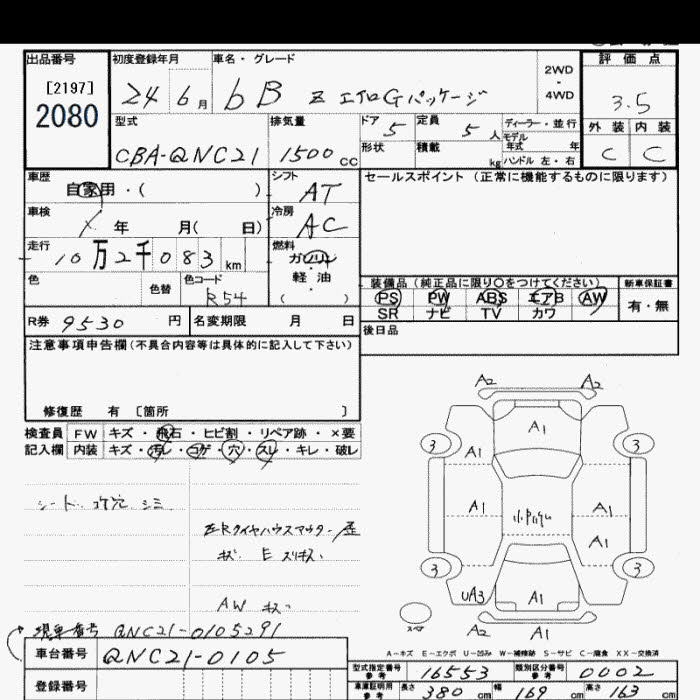 出品番号 初度登録年月 車名・グレード 2WD - 4WD 評価点
[2197] 2080 24 6月 bB Z エアロGパッケージ 3.5
型式 排気量 ドア 定員 ディーラー・並行 外装 内装
CBA-QNC21 1500cc 5 5人 モデル年式 年 C C
形状 積載 kg ハンドル 左・右
車歴 自家用・( ) シフト AT セールスポイント (正常に機能するものに限ります)
車検 年 月( 日) 冷房 AC
走行 10万2千083km 燃料 ガソリン・軽油 ( )
色 色替 色コード R54 装備品 (純正品に限り○をつけてください) 新車保証書
PS PW ABS エアB AW 有・無
SR ナビ TV カワ
R券 9530円 名変期限 月 日 後日品
注意事項申告欄(不具合内容等は具体的に記入して下さい)
修復歴 有 〔箇所 〕
検査員 FW キズ・飛石・ヒビ割・リペア跡・×要
記入欄 内装 キズ・汚レ・コゲ・穴・スレ・キレ・破レ
シート コゲ穴 シミ
キズ E スリキズ
AW キズ
A2 A2
A1
3 A1 3
A1 A1
A1
3 3
UA3 A1
A2 A1
A-キズ E-エクボ U-凹み W-補修跡 S-サビ C-腐食 XX-交換済
現車番号 QNC21-0105291
車台番号 QNC21-0105
登録番号
型式指定番号 参考 16553 類別区分番号 参考 0002
車庫証明用 参考 長さ 380cm 幅 169cm 高さ 163cm